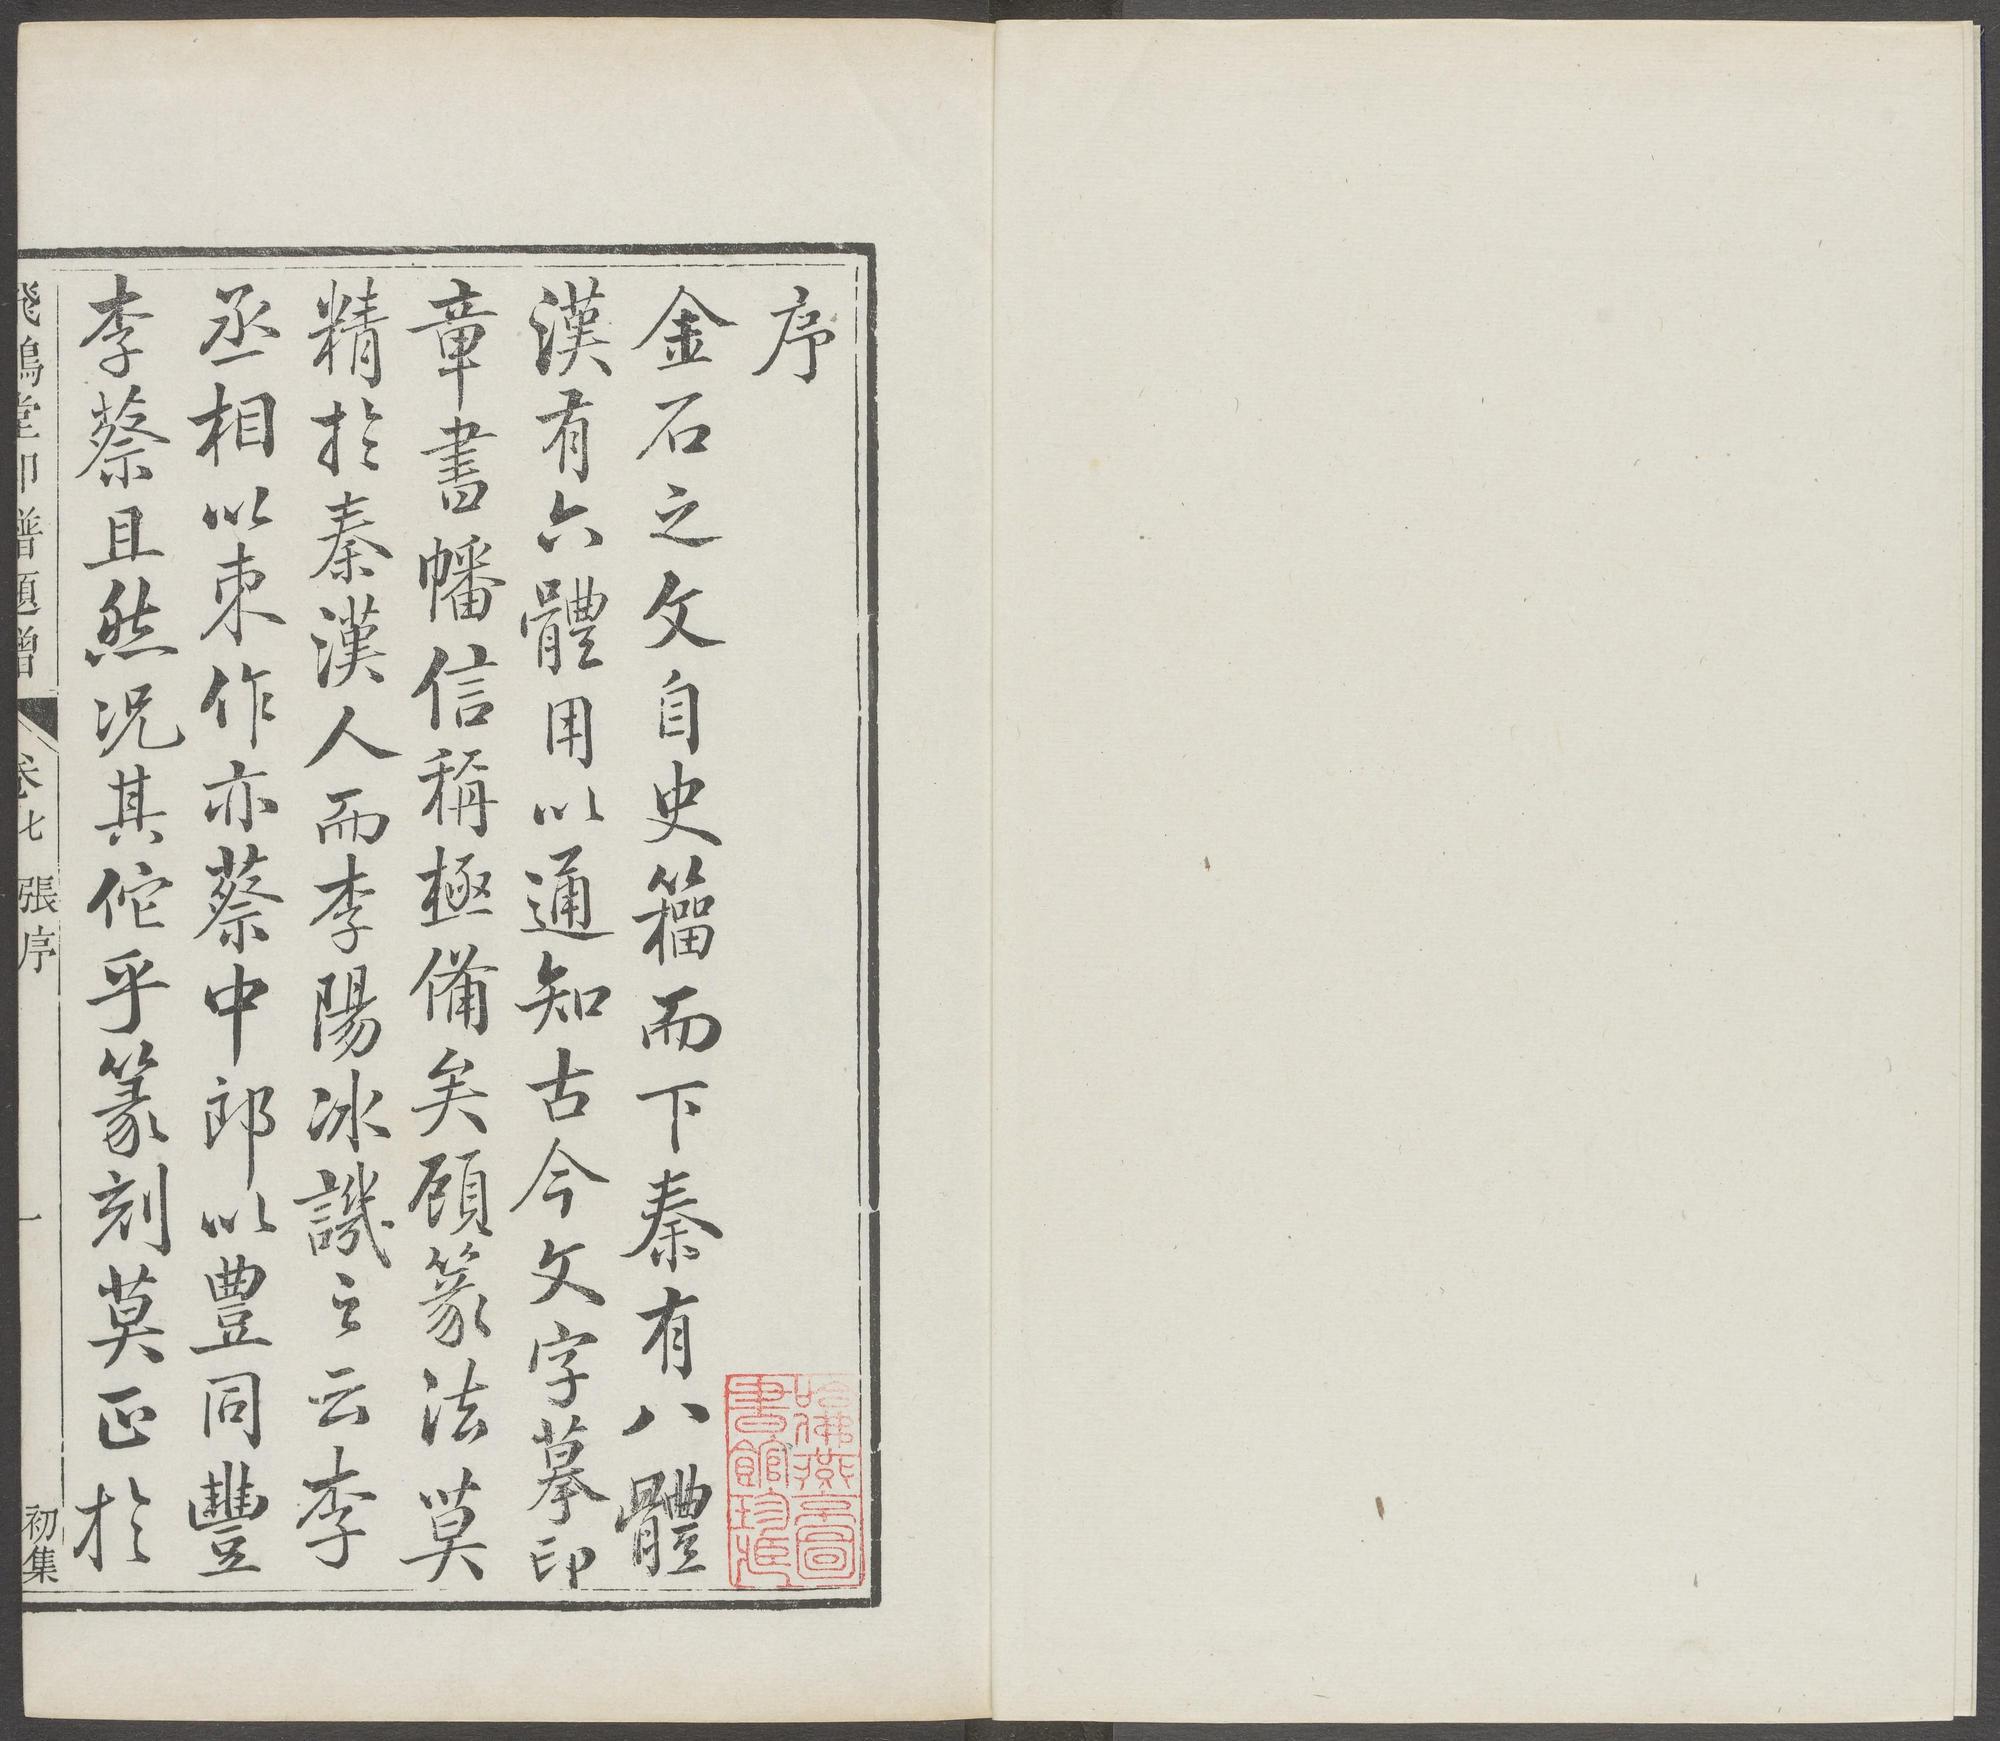 序
金石之文自史籀而下秦有八體
漢有六體用以通知古今文字摹印
章書幡信稱極備矣顧篆法莫
精於秦漢人而李陽冰譏之云李
丞相以束作亦蔡中郎以豊同豐
李蔡且然况其佗乎篆刻莫正於
飛鴻堂印譜題贈 卷七 張序 一 初集
哈佛燕
京圖
書館珍
藏